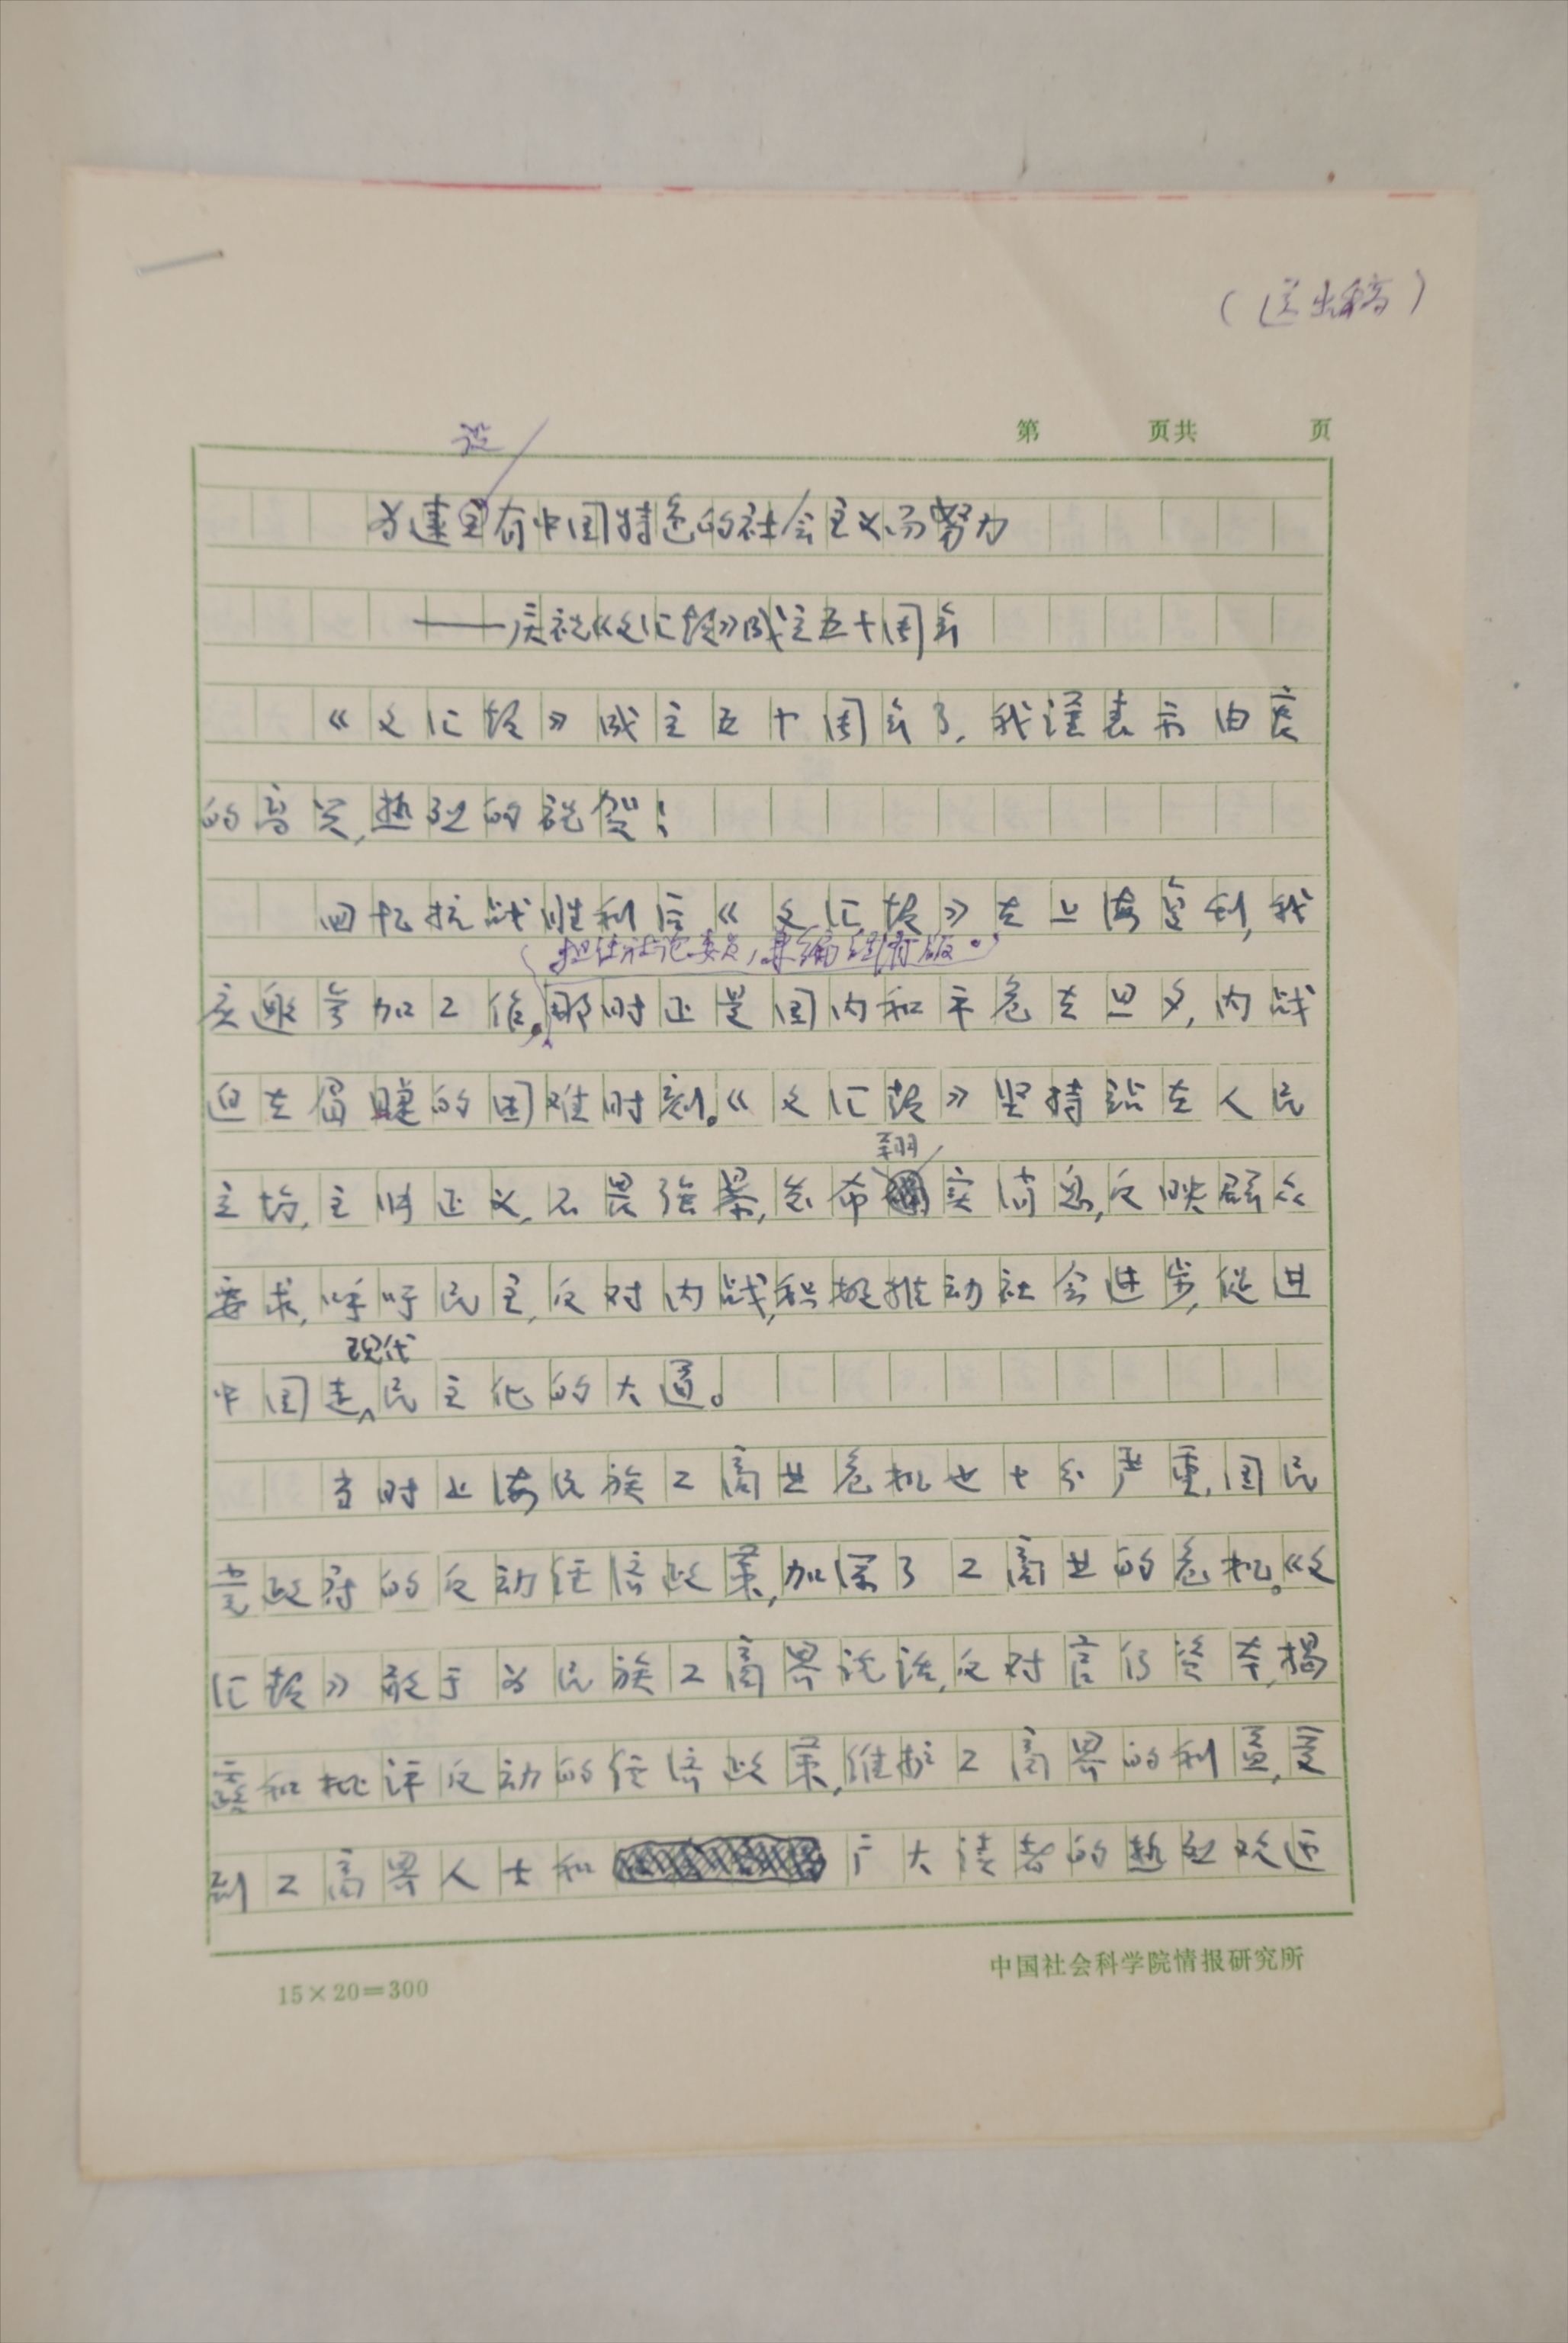 （送出稿）
第 页共 页
设
为建立有中国特色的社会主义而努力
——庆祝《文汇报》成立五十周年
《文汇报》成立五十周年了,我谨表示由衷
的高兴,热烈的祝贺!
回忆抗战胜利后《文汇报》在上海复刊,我
担任社论委员,兼编经济版。
应邀参加工作。那时正是国内和平危在旦夕,内战
迫在眉睫的困难时刻。《文汇报》坚持站在人民
翔
立场,主持正义,不畏强暴,发布实消息,反映群众
要求,呼吁民主,反对内战,积极推动社会进步,促进
现代
中国走民主化的大道。
当时上海民族工商业危机也十分严重,国民
党政府的反动经济政策,加深了工商业的危机。《文
汇报》敢于为民族工商界说话,反对官僚资本,揭
露和批评反动的经济政策,维护工商界的利益,受
到工商界人士和广大读者的热烈欢迎
15×20=300
中国社会科学院情报研究所